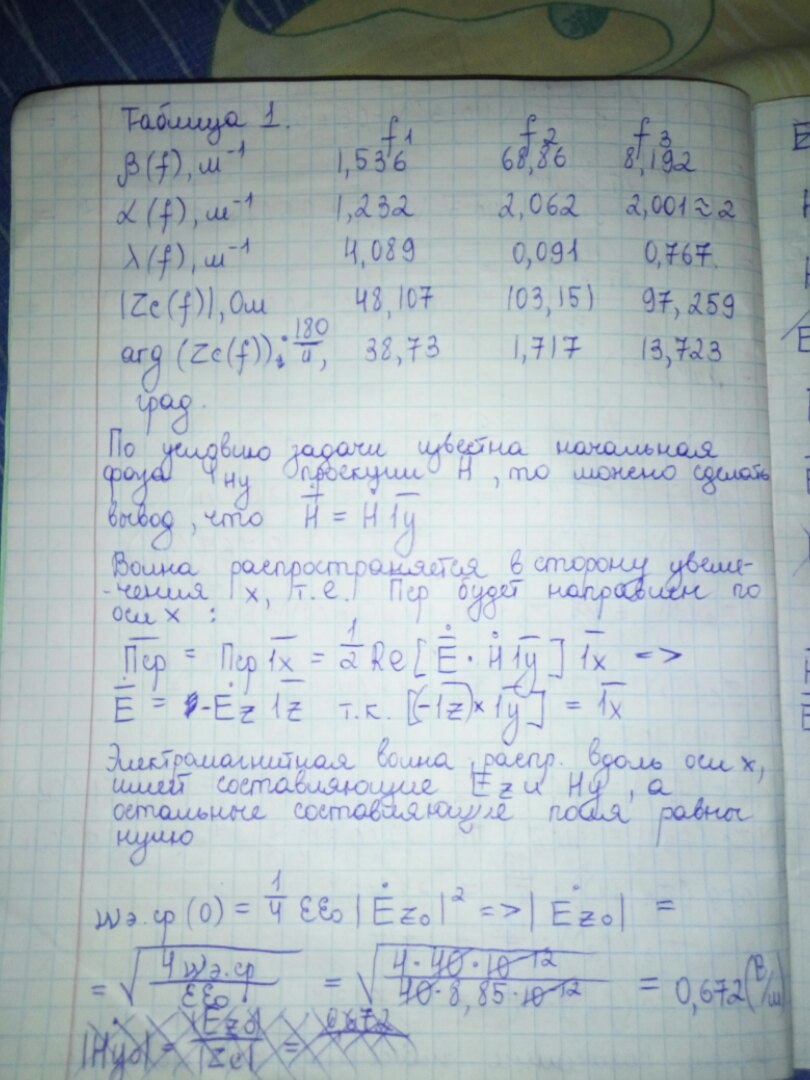 Таблица 1.
f1 f2 f3
β(f), м⁻¹ 1,536 68,86 8,192
α(f), м⁻¹ 1,232 2,062 2,001≈2
λ(f), м⁻¹ 4,089 0,091 0,767
|Zc(f)|, Ом 48,107 103,151 97,259
arg (Zc(f)) · 180/π, 38,73 1,717 13,723
град.
По условию задачи известна начальная
фаза Ψну проекции Н, то можно сделать
вывод, что H̄̇ = Ḣ 1̄y
Волна распространяется в сторону увели-
-чения x, т.е. Пср будет направлен по
оси x :
П̄ср = Пср 1̄x = 1/2 Re [Ē̇ · Ḣ 1̄y] 1̄x =>
Ē̇ = -Ėz 1̄z т.к. [(-1̄z) × 1̄y] = 1̄x
Электромагнитная волна, распр. вдоль оси x,
имеет составляющие Ez и Hy, а
остальные составляющие поля равны
нулю
wэ.ср (0) = 1/4 εε₀ |Ėz₀|² => |Ėz₀| =
= √(4wэ.ср / εε₀) = √(4·40·10⁻¹² / 40·8,85·10⁻¹²) = 0,672 (В/м)
|Hy0| = |Ez0| / |Zc| = 0,672